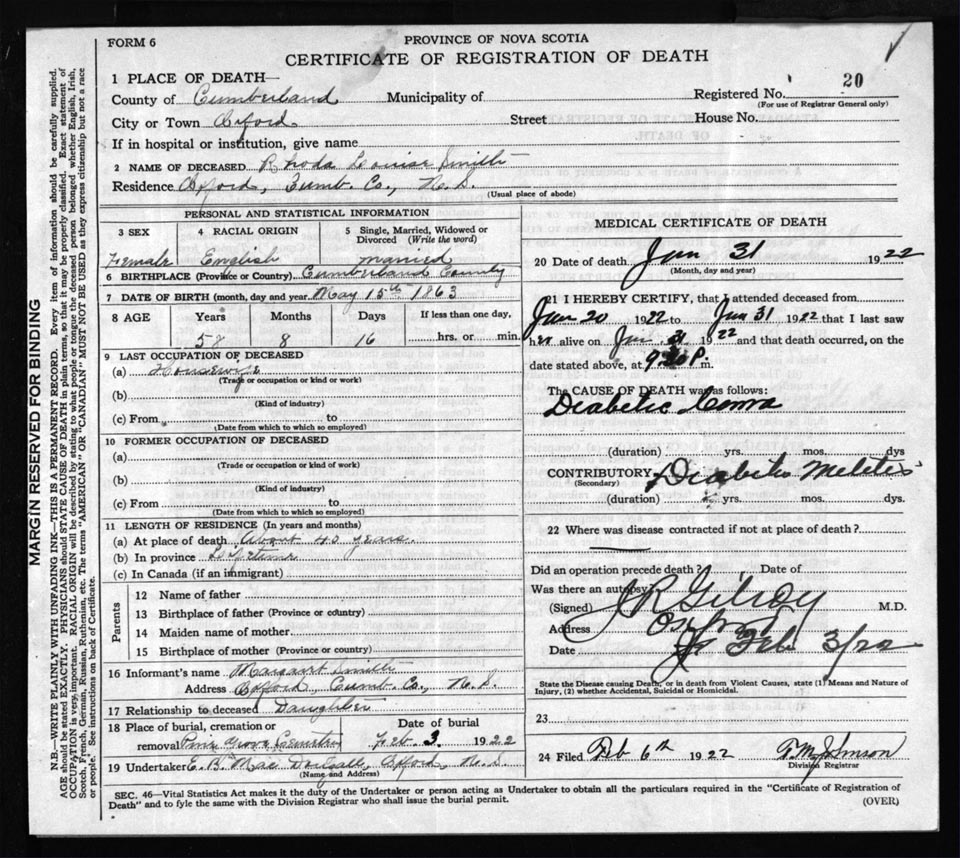 FORM 6
PROVINCE OF NOVA SCOTIA
CERTIFICATE OF REGISTRATION OF DEATH
1 PLACE OF DEATH—
County of Cumberland Municipality of
Registered No. 20
(For use of Registrar General only)
City or Town Oxford Street House No.
If in hospital or institution, give name
2 NAME OF DECEASED Rhoda Louise Smith
Residence Oxford, Cumb. Co., N.S.
(Usual place of abode)
PERSONAL AND STATISTICAL INFORMATION
3 SEX 4 RACIAL ORIGIN 5 Single, Married, Widowed or Divorced (Write the word)
Female English married
6 BIRTHPLACE (Province or Country) Cumberland County
7 DATE OF BIRTH (month, day and year) May 15th 1863
8 AGE Years Months Days If less than one day,
58 8 16 hrs. or min.
9 LAST OCCUPATION OF DECEASED
(a) Housewife
(Trade or occupation or kind or work)
(b)
(Kind of industry)
(c) From to
(Date from which to which so employed)
10 FORMER OCCUPATION OF DECEASED
(a)
(Trade or occupation or kind of work)
(b)
(Kind of industry)
(c) From to
(Date from which to which so employed)
11 LENGTH OF RESIDENCE (In years and months)
(a) At place of death About 40 years.
(b) In province Lifetime
(c) In Canada (if an immigrant)
Parents
12 Name of father
13 Birthplace of father (Province or country)
14 Maiden name of mother
15 Birthplace of mother (Province or country)
16 Informant's name Margaret Smith
Address Oxford Cumb. Co., N.S.
17 Relationship to deceased Daughter
18 Place of burial, cremation or Date of burial
removal Pine Grove Cemetery Feb. 3. 1922
19 Undertaker E. B. Mac Oxford N.S.
(Name and Address)
MEDICAL CERTIFICATE OF DEATH
20 Date of death Jan 31 1922
(Month, day and year)
21 I HEREBY CERTIFY, that I attended deceased from
Jan 20 1922 to Jan 31 1922 that I last saw
her alive on Jan 31 1922 and that death occurred, on the
date stated above, at P. m.
The CAUSE OF DEATH was as follows:
Diabetic Coma
(duration) yrs. mos. dys
CONTRIBUTORY Diabetis Meletis
(Secondary)
(duration) yrs. mos. dys.
22 Where was disease contracted if not at place of death?
Did an operation precede death? Date of
Was there an autopsy
(Signed) R Gilroy M.D.
Address Oxford
Date Feb 3/22
State the Disease causing Death, or in death from Violent Causes, state (1) Means and Nature of
Injury, (2) whether Accidental, Suicidal or Homicidal.
23
24 Filed Feb 6th 1922 Johnson
Division Registrar
SEC. 46—Vital Statistics Act makes it the duty of the Undertaker or person acting as Undertaker to obtain all the particulars required in the "Certificate of Registration of
Death" and to fyle the same with the Division Registrar who shall issue the burial permit.
(OVER)
MARGIN RESERVED FOR BINDING
N.B.—WRITE PLAINLY WITH UNFADING INK—THIS IS A PERMANENT RECORD. Every item of information should be carefully supplied.
AGE should be stated EXACTLY. PHYSICIANS should STATE CAUSE OF DEATH in plain terms, so that it may be properly classified. Exact statement of
OCCUPATION is very important. RACIAL ORIGIN will be described by stating to what people or tongue the deceased person belonged whether English, Irish,
Scotch, French, German, Russian, Ruthenian, etc. The terms "AMERICAN" OR "CANADIAN" MUST NOT BE USED as they express citizenship but not a race
or people. See instructions on back of Certificate.